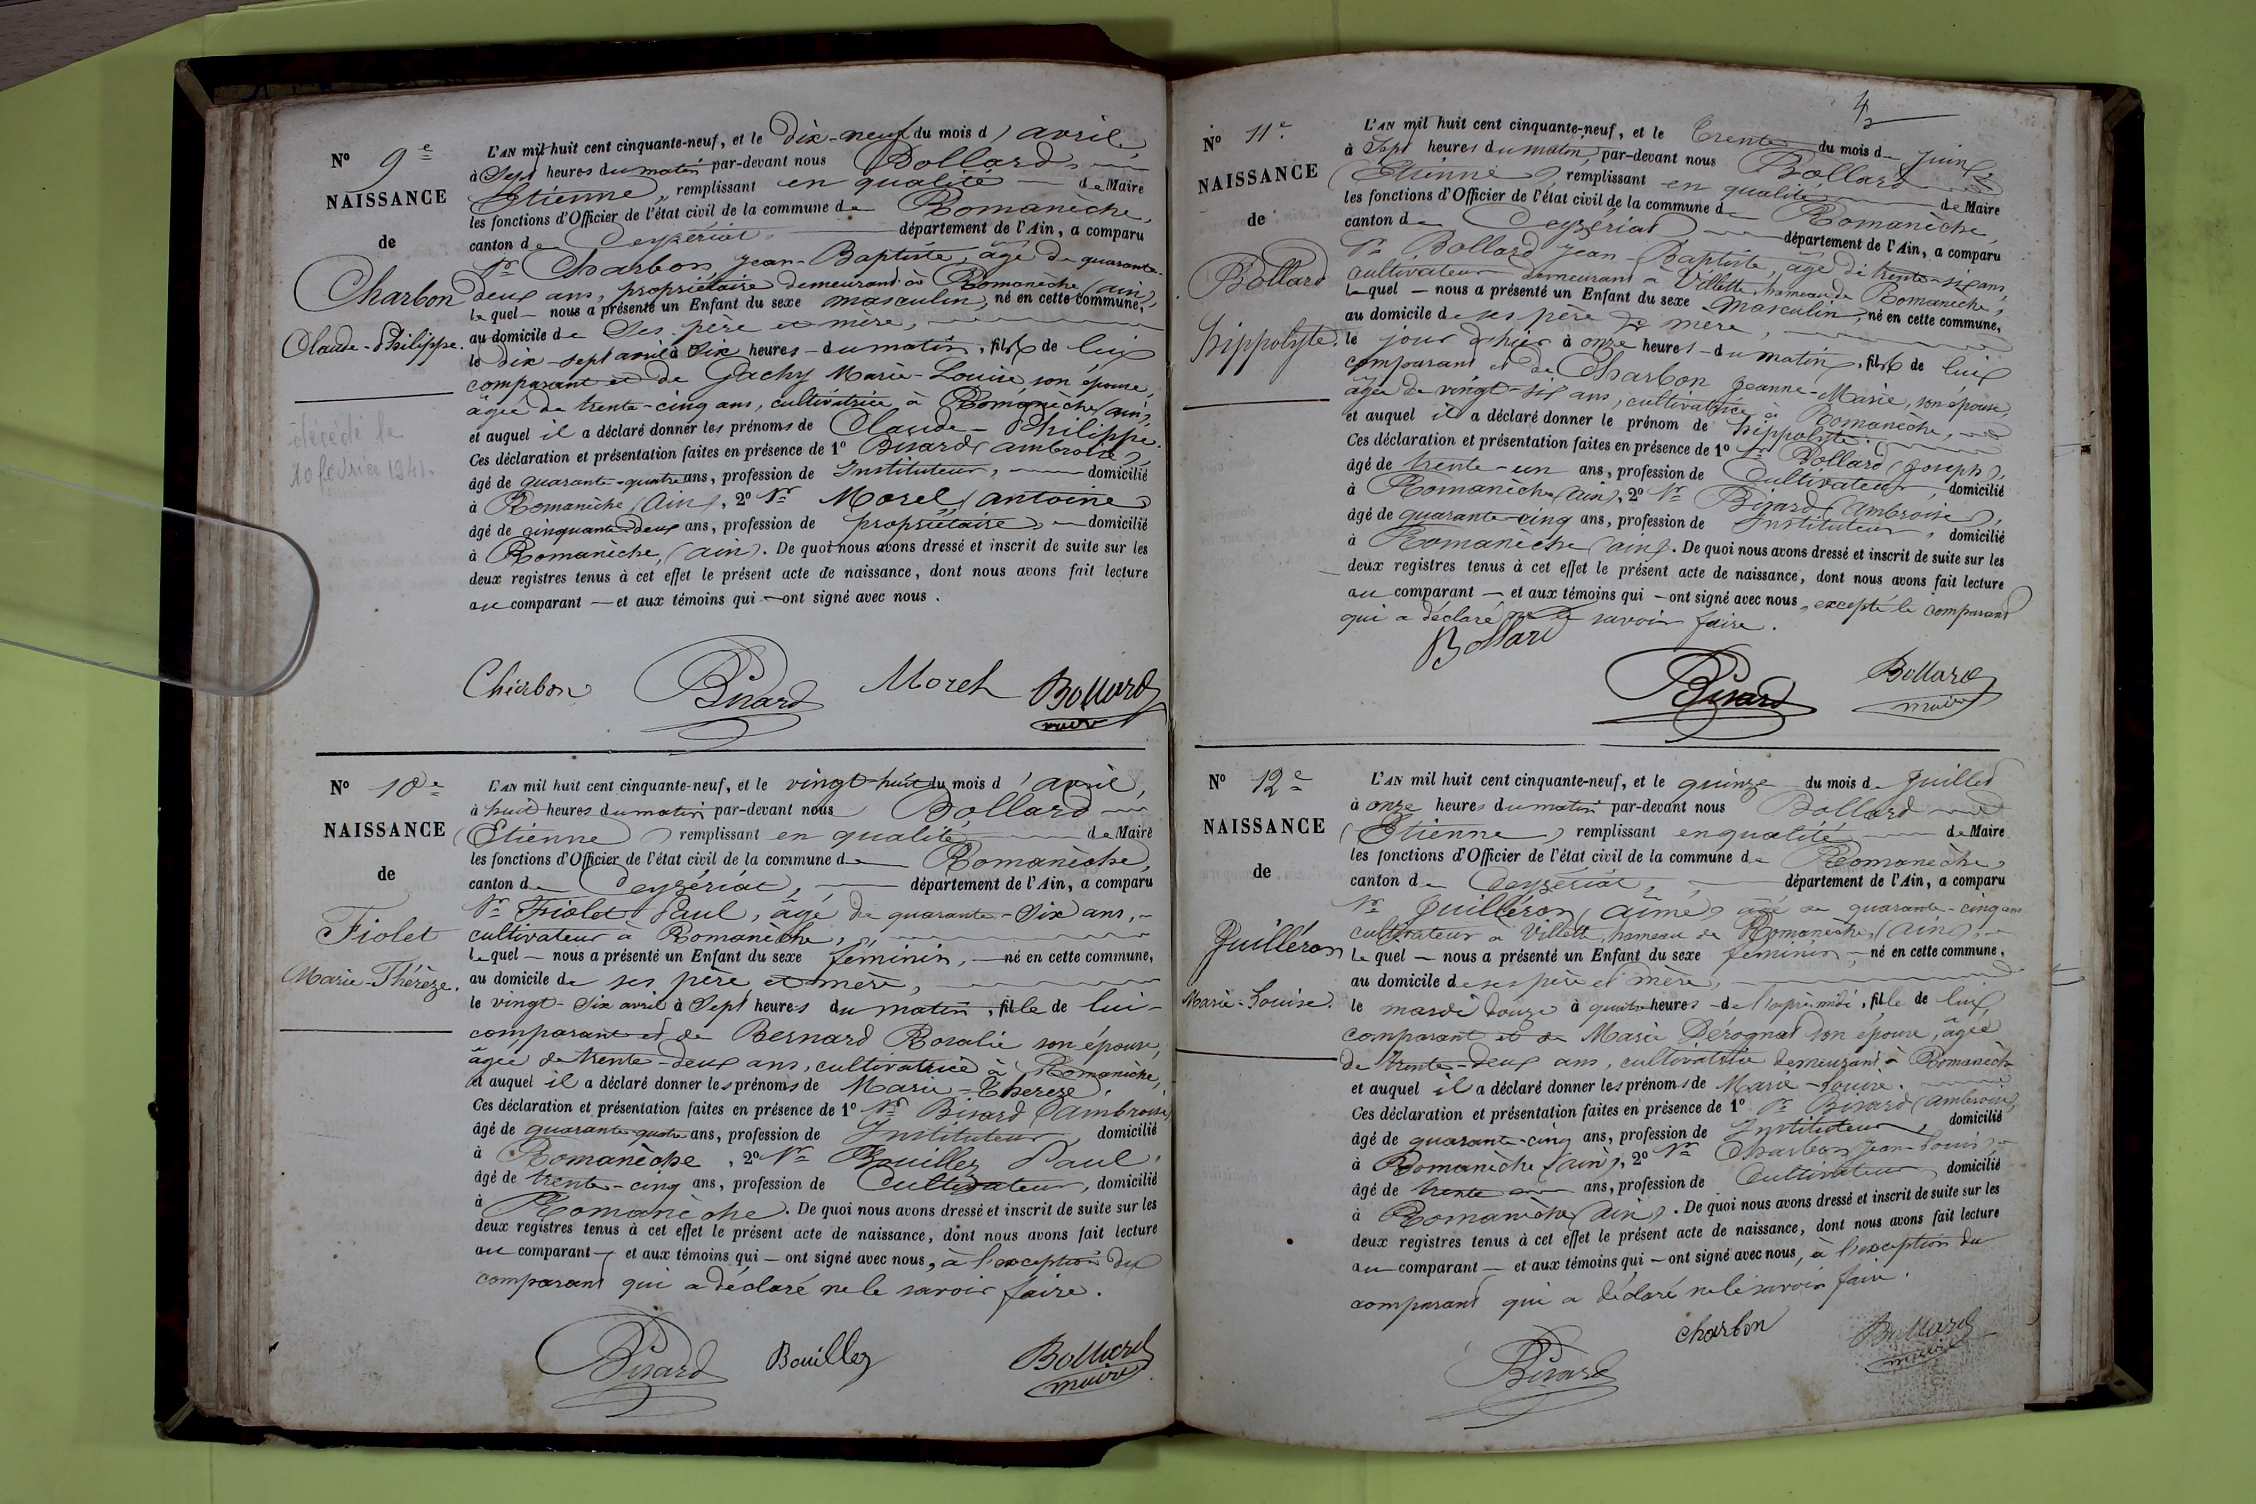 N° 9e
NAISSANCE
de
Charbon
Claude-Philippe.
décédé le
10 février 1941.
L'AN mil huit cent cinquante-neuf, et le Dix-neuf du mois d'avril,
à Sept heures du matin par-devant nous Bollard
Etienne, remplissant en qualité de Maire
les fonctions d'Officier de l'état civil de la commune de Romanèche,
canton de Ceyzériat, département de l'Ain, a comparu
Sr Charbon, Jean-Baptiste, âgé de quarante-
deux ans, propriétaire demeurant à Romanèche (ain),
lequel nous a présenté un Enfant du sexe masculin, né en cette commune,
au domicile de Ses père et mère,
le dix-sept avril à Six heures du matin, fils de lui
comparant et de Gachy Marie-Louise, son épouse,
âgée de trente-cinq ans, cultivatrice à Romanèche (ain),
et auquel il a déclaré donner les prénoms de Claude-Philippe.
Ces déclaration et présentation faites en présence de 1° Birard (ambroise),
âgé de quarante-quatre ans, profession de Instituteur, domicilié
à Romanèche (Ain), 2° Sr Morel (antoine)
âgé de cinquante-deux ans, profession de propriétaire, domicilié
à Romanèche, (ain). De quoi nous avons dressé et inscrit de suite sur les
deux registres tenus à cet effet le présent acte de naissance, dont nous avons fait lecture
au comparant et aux témoins qui ont signé avec nous.
Charbon Birard Morel Bollard
maire
N° 10e
NAISSANCE
de
Fiolet
Marie-Thérèze.
L'AN mil huit cent cinquante-neuf, et le vingt-huit du mois d'avril,
à huit heures du matin par-devant nous Bollard
(Etienne) remplissant en qualité de Maire
les fonctions d'Officier de l'état civil de la commune de Romanèche,
canton de Ceyzériat, département de l'Ain, a comparu
Sr Fiolet Paul, âgé de quarante-Six ans,
cultivateur à Romanèche,
lequel nous a présenté un Enfant du sexe féminin, né en cette commune,
au domicile de ses père et mère,
le vingt-Six avril à Sept heures du matin, fille de lui-
comparant et de Bernard Rosalie son épouse,
âgée de trente-deux ans, cultivatrice à Romanèche,
et auquel il a déclaré donner les prénoms de Marie-Thereze.
Ces déclaration et présentation faites en présence de 1° Sr Birard (ambroise)
âgé de quarante-quatre ans, profession de Instituteur, domicilié
à Romanèche, 2° Sr Bouillez Paul,
âgé de trente-cinq ans, profession de Cultivateur, domicilié
à Romanèche. De quoi nous avons dressé et inscrit de suite sur les
deux registres tenus à cet effet le présent acte de naissance, dont nous avons fait lecture
au comparant et aux témoins qui ont signé avec nous, à l'exception du
comparant qui a déclaré ne le savoir faire.
Birard Bouillez Bollard
maire
4
N° 11e.
NAISSANCE
de
Bollard
hippolyte.
L'AN mil huit cent cinquante-neuf, et le Trente du mois de Juin,
à Sept heures du matin, par-devant nous Bollard
(Etienne) remplissant en qualité de Maire
les fonctions d'Officier de l'état civil de la commune de Romanèche,
canton de Ceyzériat département de l'Ain, a comparu
Sr Bollard Jean-Baptiste, âgé de trente-six ans,
cultivateur demeurant à Villette, hameau de Romanèche,
lequel nous a présenté un Enfant du sexe masculin, né en cette commune,
au domicile de ses père & mère,
le jour d'hier à onze heures du matin, fils de lui
comparant et de Charbon Jeanne-Marie, son épouse,
âgée de vingt-six ans, cultivatrice à Romanèche,
et auquel il a déclaré donner le prénom de hippolyte.
Ces déclaration et présentation faites en présence de 1° Sr Bollard (Joseph),
âgé de trente-un ans, profession de Cultivateur, domicilié
à Romanèche (ain), 2° Sr Birard (Ambroise),
âgé de quarante-cinq ans, profession de Instituteur, domicilié
à Romanèche (ain). De quoi nous avons dressé et inscrit de suite sur les
deux registres tenus à cet effet le présent acte de naissance, dont nous avons fait lecture
au comparant et aux témoins qui ont signé avec nous, excepté le comparant
qui a déclaré ne le savoir faire.
Bollard
Birard Bollard
maire
N° 12e
NAISSANCE
de
Juilléron
Marie-Louise.
L'AN mil huit cent cinquante-neuf, et le quinze du mois de Juillet
à onze heures du matin par-devant nous Bollard
(Etienne) remplissant en qualité de Maire
les fonctions d'Officier de l'état civil de la commune de Romanèche,
canton de Ceyzériat, département de l'Ain, a comparu
Sr Juilléron (aimé) âgé de quarante-cinq ans
cultivateur à Villette, hameau de Romanèche, (ain),
lequel nous a présenté un Enfant du sexe féminin, né en cette commune,
au domicile de ses père et mère,
le mardi douze à quatre heures de l'après-midi, fille de lui
comparant et de Marie Dérognat son épouse, âgée
de trente-deux ans, cultivatrice demeurant à Romanèche
et auquel il a déclaré donner les prénoms de Marie-Louise.
Ces déclaration et présentation faites en présence de 1° Sr Birard (ambroise),
âgé de quarante-cinq ans, profession de Instituteur, domicilié
à Romanèche (ain), 2° Sr Charbon Jean-Louis,
âgé de trente ans, profession de Cultivateur domicilié
à Romanèche (ain). De quoi nous avons dressé et inscrit de suite sur les
deux registres tenus à cet effet le présent acte de naissance, dont nous avons fait lecture
au comparant et aux témoins qui ont signé avec nous, à l'exception du
comparant qui a déclaré ne le savoir faire.
charbon Bollard
maire
Birard